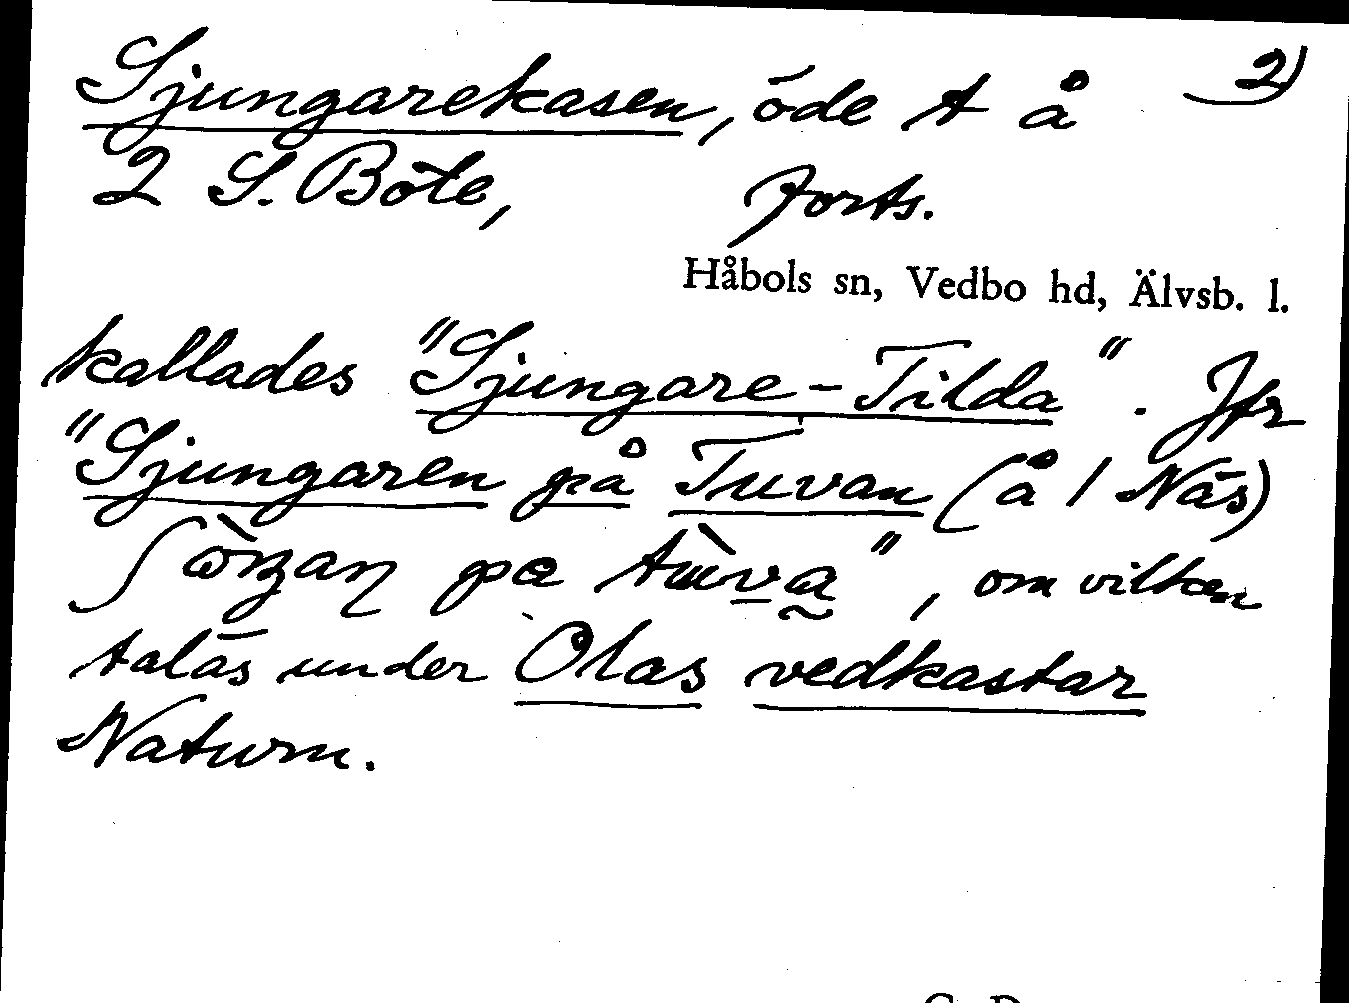 Sjungarekasen, öde t å 2)
2 S. Böte, forts.
Håbols sn, Vedbo hd, Älvsb. l.
kallades "Sjungare-Tilda". Jfr
"Sjungaren på Tuvan (å 1 Näs)
pa", om vilken
talas under Olas vedkastar
Naturn.